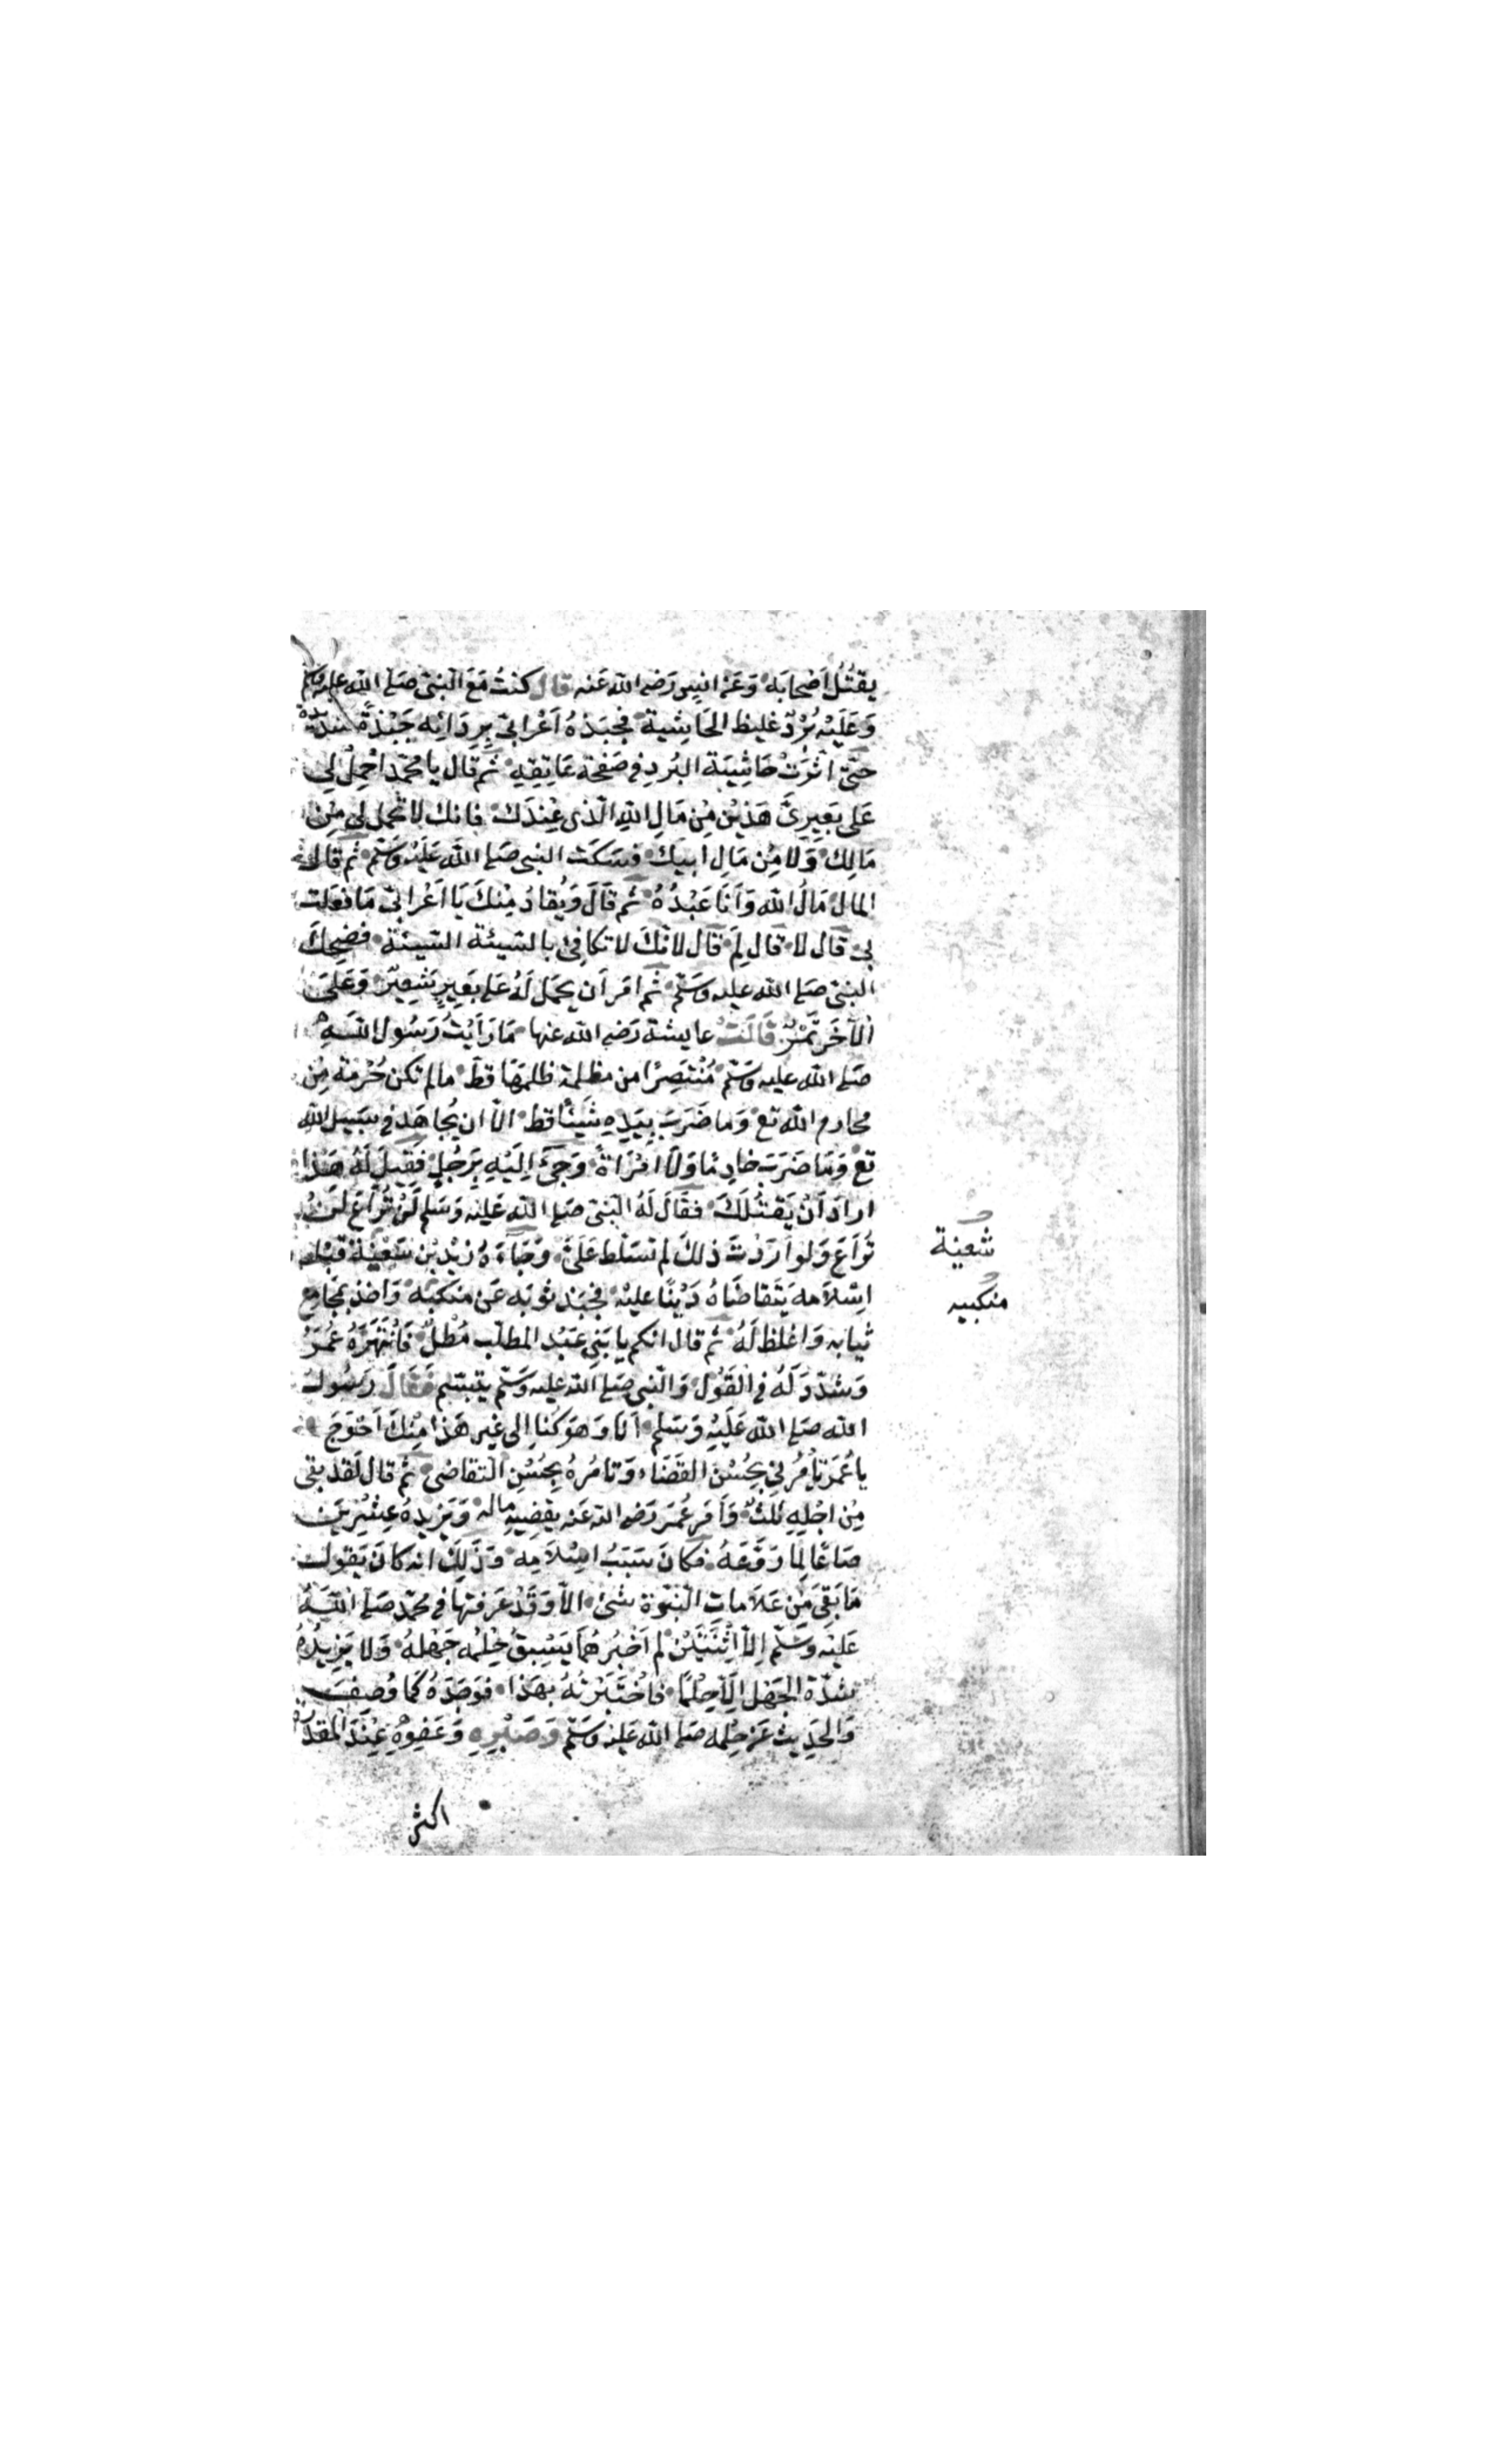 يقتُلُ أَصْحَابَه وَعَنْ انسٍ رَضى الله عَنه قال كنتُ مَعَ النبىّ صَلى الله عليه وسلم
وَعَلَيْه بُرْدٌ غليظ الحَاشِية فجبَذهُ أعْرَابىّ بِرِدَائِه جَبْذَةً شديدة
حتّى اَثّرَتْ حَاشِيَة البُردِ فى صَفحة عَاتِقِهِ ثم قال يا محمّد احْمِلْ لى
عَلى بَعِيرىَّ هَذيْن مِنْ مَالِ اللهِ الّذى عِنْدَكَ فانك لا تحمل لى مِنْ
مَالِكَ وَلا مِنْ مَالِ ابيكَ فسَكَتَ النبى صَلى الله عَلَيْه وَسَلّم ثم قال
المال مَالُ الله وَاَنَا عَبْدُهُ ثم قَالَ وَيُقادُ مِنْكَ يَا اَعْرابىّ مَا فعَلتَ
بى قال لا قال لِمَ قال لانّكَ لا تكافئ بالسّيئة السّيئة فضحِكَ
النبىّ صَلى الله عليه وسَلّم ثم اَمَر اَن يحمَل لَهُ عَلى بَعيرٍ شَعِيرٌ وَعَلى
الآخَر تمْرٌ قَالَتْ عايشة رَضى الله عنها مَا رَاَيْتُ رَسُول اللهِ
صَلى الله عليه وسَلّم مُنْتَصِرًا من مظلمة ظلِمَهَا قطّ مالم تكن حُرْمَة مِنْ
محارم الله تع وَما ضَرَبَ بِيَدِهِ شَيئًا قط الاّ ان يُجاهَد فى سَبيل الله
تع وَمَا ضرَبَ خادِمًا وَلا امْرَاةً وَجئَ اِلَيْهِ بِرَجُلٍ فَقِيلَ لَهُ هَذا
ارادَ اَنْ يَقتُلَكَ فقَالَ لَهُ النبىّ صَلى الله عَليْه وَسَلم لَنْ تُرَاعَ لَنْ
تُرَاعَ وَلو اَرَدْتَ ذلكَ لم تسَلّط عَلَىَّ وَجَاءَهُ زَيْدُ بْن سَعْيَة قبْل
اسْلامه يَتَقاضَاهُ دَيْنًا عليْه فجبَذ ثوبَه عَن منكبه وَاخذ بمَجَامِع
ثيابه وَاغلظ لَهُ ثم قال انكم يا بَنى عَبْد المطلب مُطْلٌ فَانْتَهَرَهُ عُمَرُ
وَشدّدَ لَهُ فى القَوْل وَالنّبى صَلى الله عليه وسَلّم يتبسّم فَقالَ رَسُول
الله صَلى الله عَلَيْهِ وَسَلم اَنَا وَهوَ كُنا الى غير هَذا مِنْكَ اَحْوَجَ
يا عُمَر تأمُرنى بحُسْن القضَاء وَتامُرهُ بِحُسْنِ التقاضى ثم قال لَقَد بقى
مِنْ اجْلِهِ ثلثٌ وَاَمَر عُمَر رَضى الله عَنه يقضيهِ ماله وَيَزيدهُ عِشْرِينَ
صَاعًا لِمَا رَوَّعَهُ فكانَ سَبَبُ اسْلامِه وَذَلِكَ انه كانَ يَقول
مَا بَقِىَ مِنْ عَلامات النّبوّة شئ الاّ وَقَدْ عَرَفتها فى محمّد صَلى الله
عَليْه وَسَلّم إلاّ اثْنَتَيْن لم اَخْبُرهُما يَسْبِقُ حِلْمُه جَهْلهُ وَلا يَزِيدُهُ
شدّة الجَهْل اِلاّ حِلمًا فاخْتَبَرْتُهُ بهَذا فوَجَدَهُ كمَا وُصِفَ
وَالحَدِيث عَنْ حِلمه صَلى الله عَليْه وسَلّم وَصَبْرِهِ وَعَفوِهِ عِنْدَ المقدرة
شعنة
منكبيه
اكثر